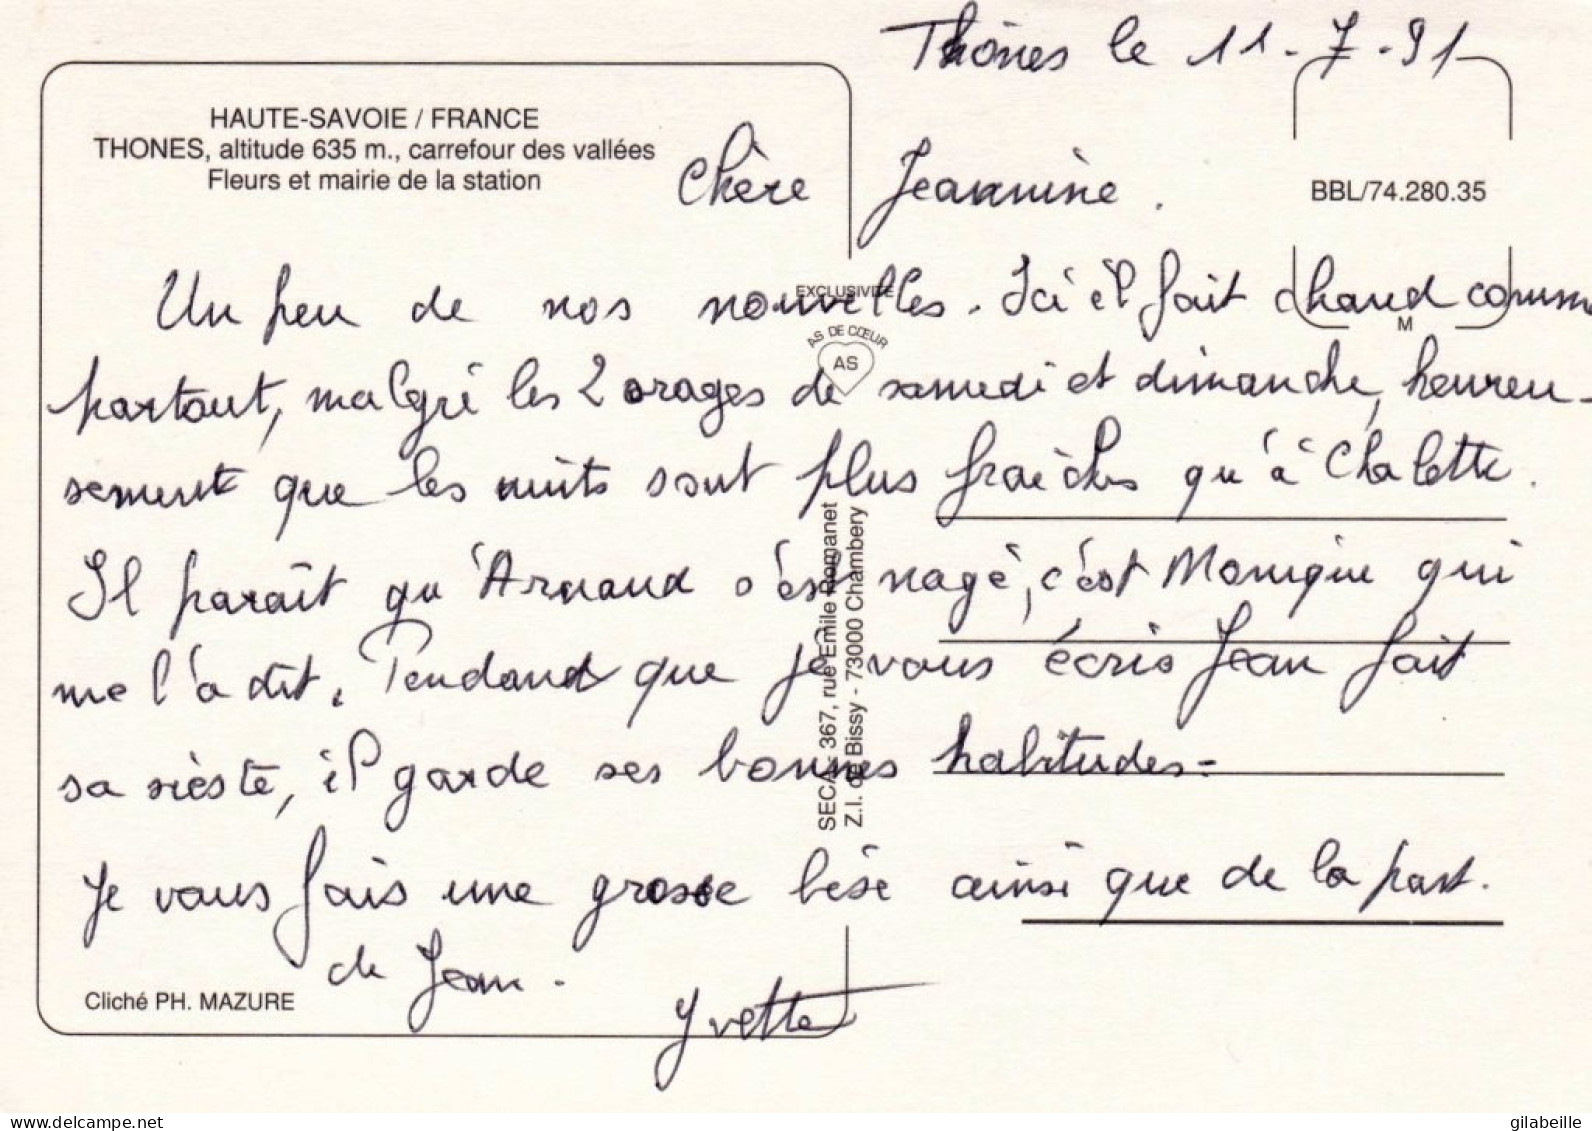 Thônes le 11-7-91
HAUTE-SAVOIE / FRANCE
THONES, altitude 635 m., carrefour des vallées
Fleurs et mairie de la station
BBL/74.280.35
Chère Jeannine.
EXCLUSIVITE
AS DE CŒUR
AS
M
Un peu de nos nouvelles. Ici il fait chaud comme
partout, malgré les 2 orages de samedi et dimanche, heureu-
sement que les nuits sont plus fraîches qu'à Chalette.
Il paraît qu'Arnaud s'est nagé, c'est Monique qui
me l'a dit. Pendand que je vous écris Jean fait
sa sièste, il garde ses bonnes habitudes-
Je vous fais une grosse bise ainsi que de la part.
de Jean.
Yvette
SECA - 367, rue Emile Romanet
Z.I. de Bissy - 73000 Chambery
Cliché PH. MAZURE
www.delcampe.net
gilabeille